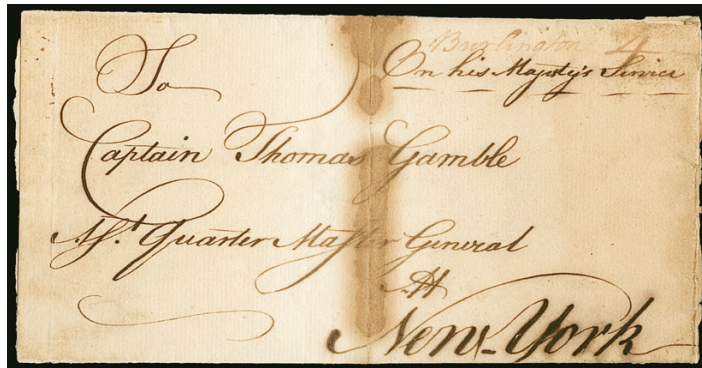 Burlington 4
On his Majesty's Service
To
Captain Thomas Gamble
Asst. Quarter Master General
At
New-York